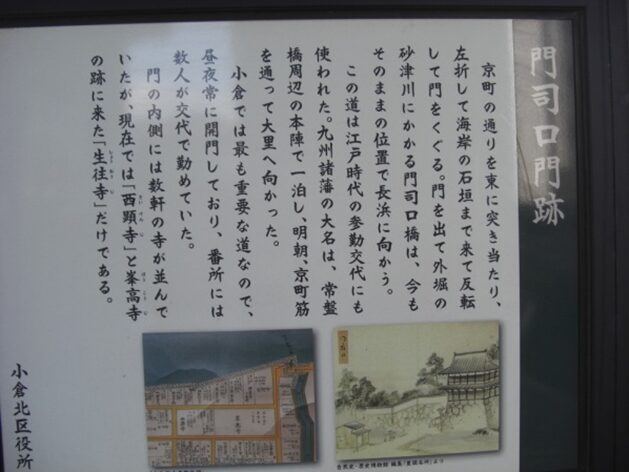 門司口門跡
京町の通りを東に突き当たり、
左折して海岸の石垣まで来て反転
して門をくぐる。門を出て外堀の
砂津川にかかる門司口橋は、今も
そのままの位置で長浜に向かう。
この道は江戸時代の参勤交代にも
使われた。九州諸藩の大名は、常盤
橋周辺の本陣で一泊し、明朝、京町筋
を通って大里へ向かった。
小倉では最も重要な道なので、
昼夜常に開門しており、番所には
数人が交代で勤めていた。
門の内側には数軒の寺が並んで
いたが、現在では「西顕寺」と峯高寺
の跡に来た「生往寺」だけである。
小倉北区役所